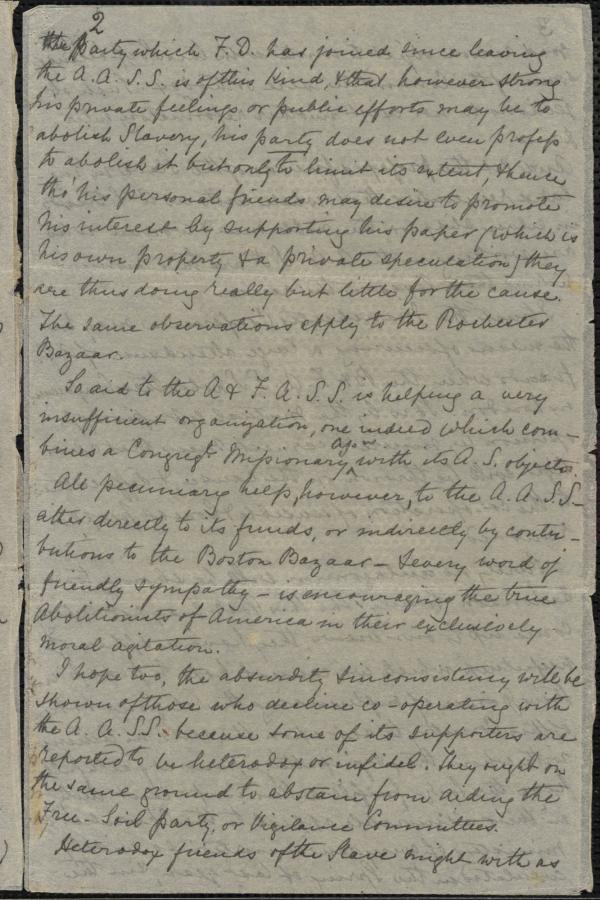 2
the party which F. D. has joined since leaving
the A. A. S. S. is of this kind, & that however strong
his private feelings or public efforts may be to
abolish Slavery, his party does not even profess
to abolish it but only to limit its extent, & hence
tho' his personal friends may desire to promote
his interest by supporting his paper (which is
his own property & a private speculation) they
are thus doing really but little for the cause.
The same observations apply to the Rochester
Bazaar.
So aid to the A & F. A. S. S. is helping a very
insufficient organization, one indeed which com-
bines a Congregl. Missionary assn with its A. S. objects.
All pecuniary help, however, to the A. A. S. S.
either directly to its funds, or indirectly by contri-
butions to the Boston Bazaar - & every word of
friendly sympathy - is encouraging the true
Abolitionists of America in their exclusively
moral agitation.
I hope too, the absurdity & inconsistency will be
shown of those who decline co-operating with
the A. A. S.S. because some of its supporters are
reported to be heterodox or infidel. They ought on
the same ground to abstain from aiding the
Free-Soil party, or Vigilance Committees.
Heterodox friends of the Slave might with as